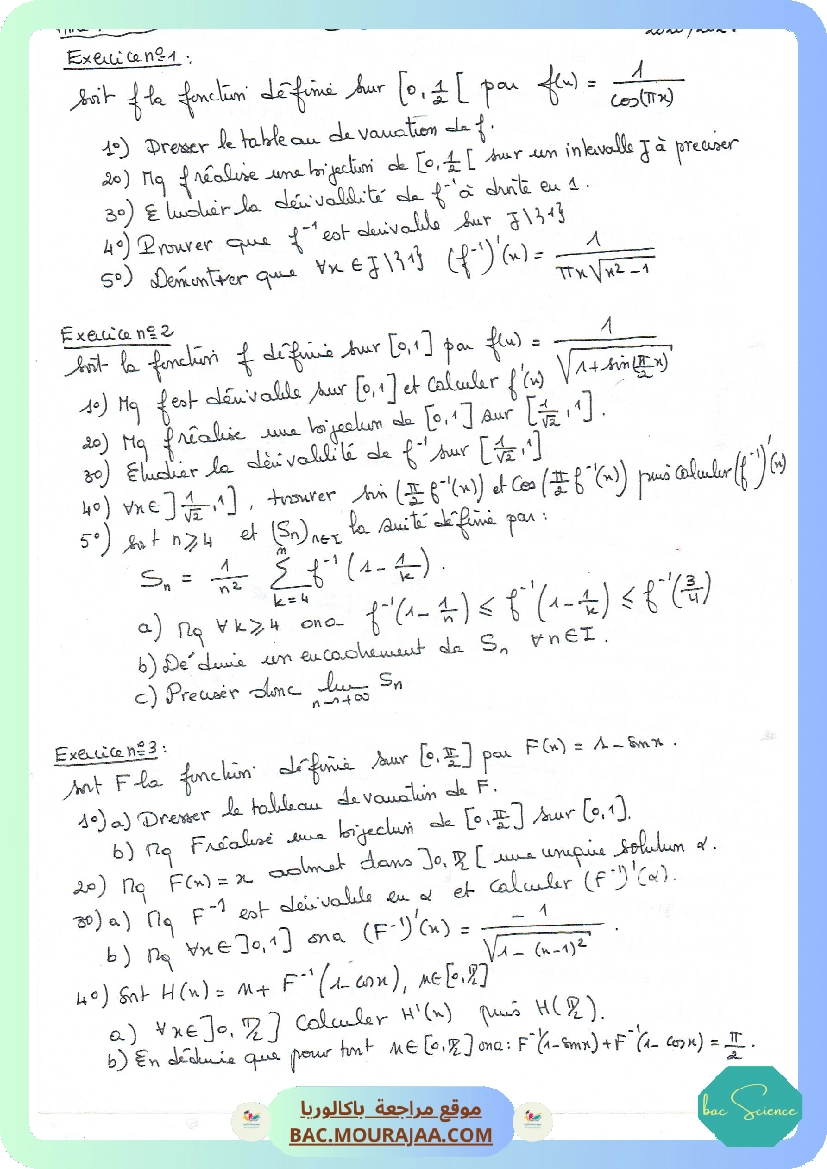 Exercice n=1 :
Soit f la fonction définie sur [0, 1/2 [ par f(x) = 1/cos(πx)
1o) Dresser le tableau de variation de f.
2o) Mq f réalise une bijection de [0, 1/2 [ sur un intervalle J à preciser
3o) Etudier la dérivabilité de f⁻¹ à droite en 1.
4o) Prouver que f⁻¹ est derivable sur J\{1}
5o) Démontrer que ∀x ∈ J\{1} (f⁻¹)'(x) = 1/(πx√(x²-1))
Exercice n=2
Soit la fonction f définie sur [0,1] par f(x) = 1/√(1+sin(π/2 x))
1o) Mq f est dérivable sur [0,1] et calculer f'(x)
2o) Mq f réalise une bijection de [0,1] sur [1/√2, 1].
3o) Etudier la dérivabilité de f⁻¹ sur [1/√2, 1]
4o) ∀x ∈ ]1/√2, 1], trouver sin (π/2 f⁻¹(x)) et cos (π/2 f⁻¹(x)) puis calculer (f⁻¹)'(x)
5o) Soit n ⩾ 4 et (Sn)n∈I la suite définie par :
Sn = 1/n² Σ(k=4 à n) f⁻¹(1 - 1/k).
a) Mq ∀ k ⩾ 4 ona f⁻¹(1 - 1/n) ≤ f⁻¹(1 - 1/k) ≤ f⁻¹(3/4)
b) Déduire un encadrement de Sn ∀n ∈ I.
c) Preciser donc lim n→+∞ Sn
Exercice n=3 :
Soit F la fonction définie sur [0, π/2] par F(x) = 1 - sin x.
1o) a) Dresser le tableau de variation de F.
b) Mq F réalise une bijection de [0, π/2] sur [0,1].
2o) Mq F(x) = x admet dans ]0, π/2[ une unique solution α.
3o) a) Mq F⁻¹ est dérivable en α et calculer (F⁻¹)'(α).
b) Mq ∀x ∈ ]0,1] ona (F⁻¹)'(x) = -1/√(1-(x-1)²).
4o) Soit H(x) = x + F⁻¹(1-cos x), x ∈ [0, π/2]
a) ∀x ∈ ]0, π/2] calculer H'(x) puis H(π/2).
b) En déduire que pour tout x ∈ [0, π/2] ona : F⁻¹(1-sin x) + F⁻¹(1-cos x) = π/2.
موقع مراجعة باكالوريا
BAC.MOURAJAA.COM
bac Science